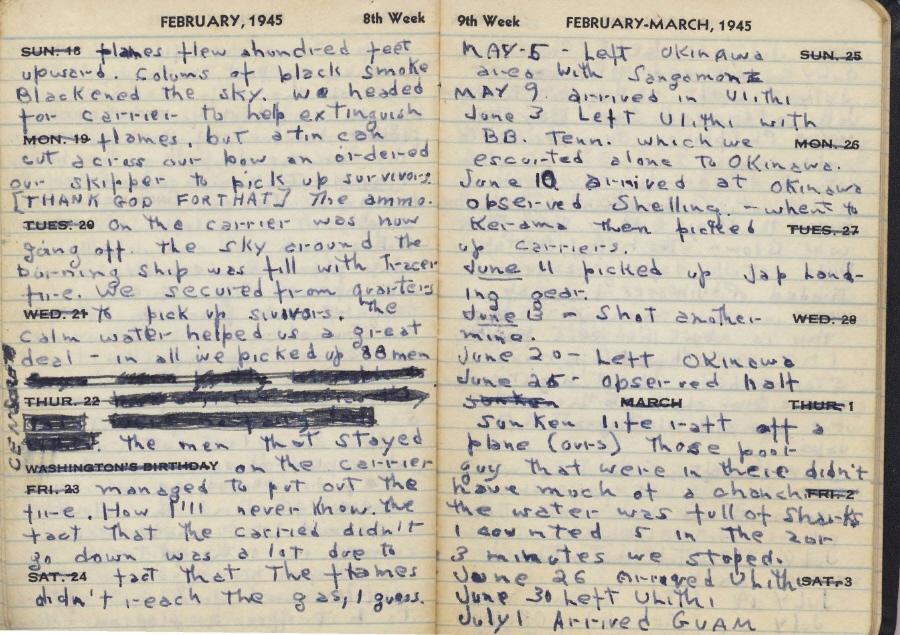 FEBRUARY, 1945 8th Week
SUN. 18 planes flew ahundred feet
upward. Colums of black smoke
Blackened the sky. We headed
for carrier to help extinguish
MON. 19 flames, but a tin can
cut across our bow an ordered
our skipper to pick up survivors.
[THANK GOD FOR THAT] The ammo.
TUES. 20 on the carrier was now
going off. the sky around the
burning ship was fill with tracer
fire. We secured from quarters
WED. 21 to pick up suvivors. The
calm water helped us a great
deal - in all we picked up 88 men
THUR. 22
CENSORED
. The men that stayed
WASHINGTON'S BIRTHDAY on the carrier
FRI. 23 managed to put out the
fire. How I'll never know. the
fact that the carried didn't
go down was a lot due to
SAT. 24 fact that The flames
didn't reach the gas, I guess.
9th Week FEBRUARY-MARCH, 1945
MAY-5 - Left Okinawa SUN. 25
area with Sangamon
MAY 9. arrived in Ulithi
June 3 Left Ulithi with
BB. Tenn. which we MON. 26
escurted alone To Okinawa.
June 10 arrived at Okinawa
observed Shelling. - when to
Kerama then picked TUES. 27
up carriers.
June 11 picked up Jap land-
ing gear.
June 13 - Shot another WED. 28
mine.
June 20 - Left Okinawa
June 25 - observed half
sunken MARCH THUR. 1
sunken life raft off a
plane (ours) Those poor
guy that were in there didn't
have much of a chanch FRI. 2
the water was full of Sharks
I counted 5 in the 2or
3 minutes we stoped.
June 26 Arrived Ulithi SAT. 3
June 30 Left Ulithi
July 1 Arrived GUAM